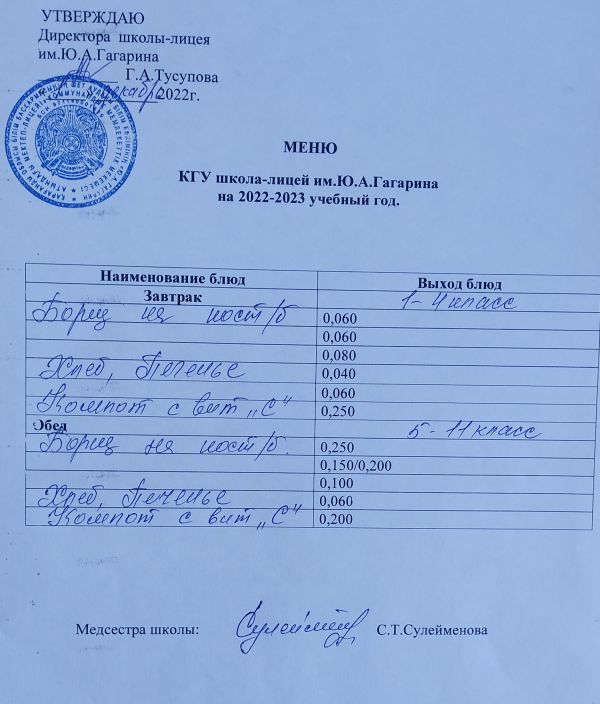 УТВЕРЖДАЮ
Директора школы-лицея
им.Ю.А.Гагарина
Г.А.Тусупова
декабрь 2022г.
МЕНЮ
КГУ школа-лицей им.Ю.А.Гагарина
на 2022-2023 учебный год.
Наименование блюд Выход блюд
Завтрак 1-4 класс
Борщ на кост/б 0,060
0,060
0,080
Хлеб, Печенье 0,040
0,060
Компот с вит „С" 0,250
Обед 5-11 класс
Борщ на кост/б. 0,250
0,150/0,200
0,100
Хлеб, Печенье 0,060
Компот с вит „С" 0,200
Медсестра школы: С.Т.Сулейменова